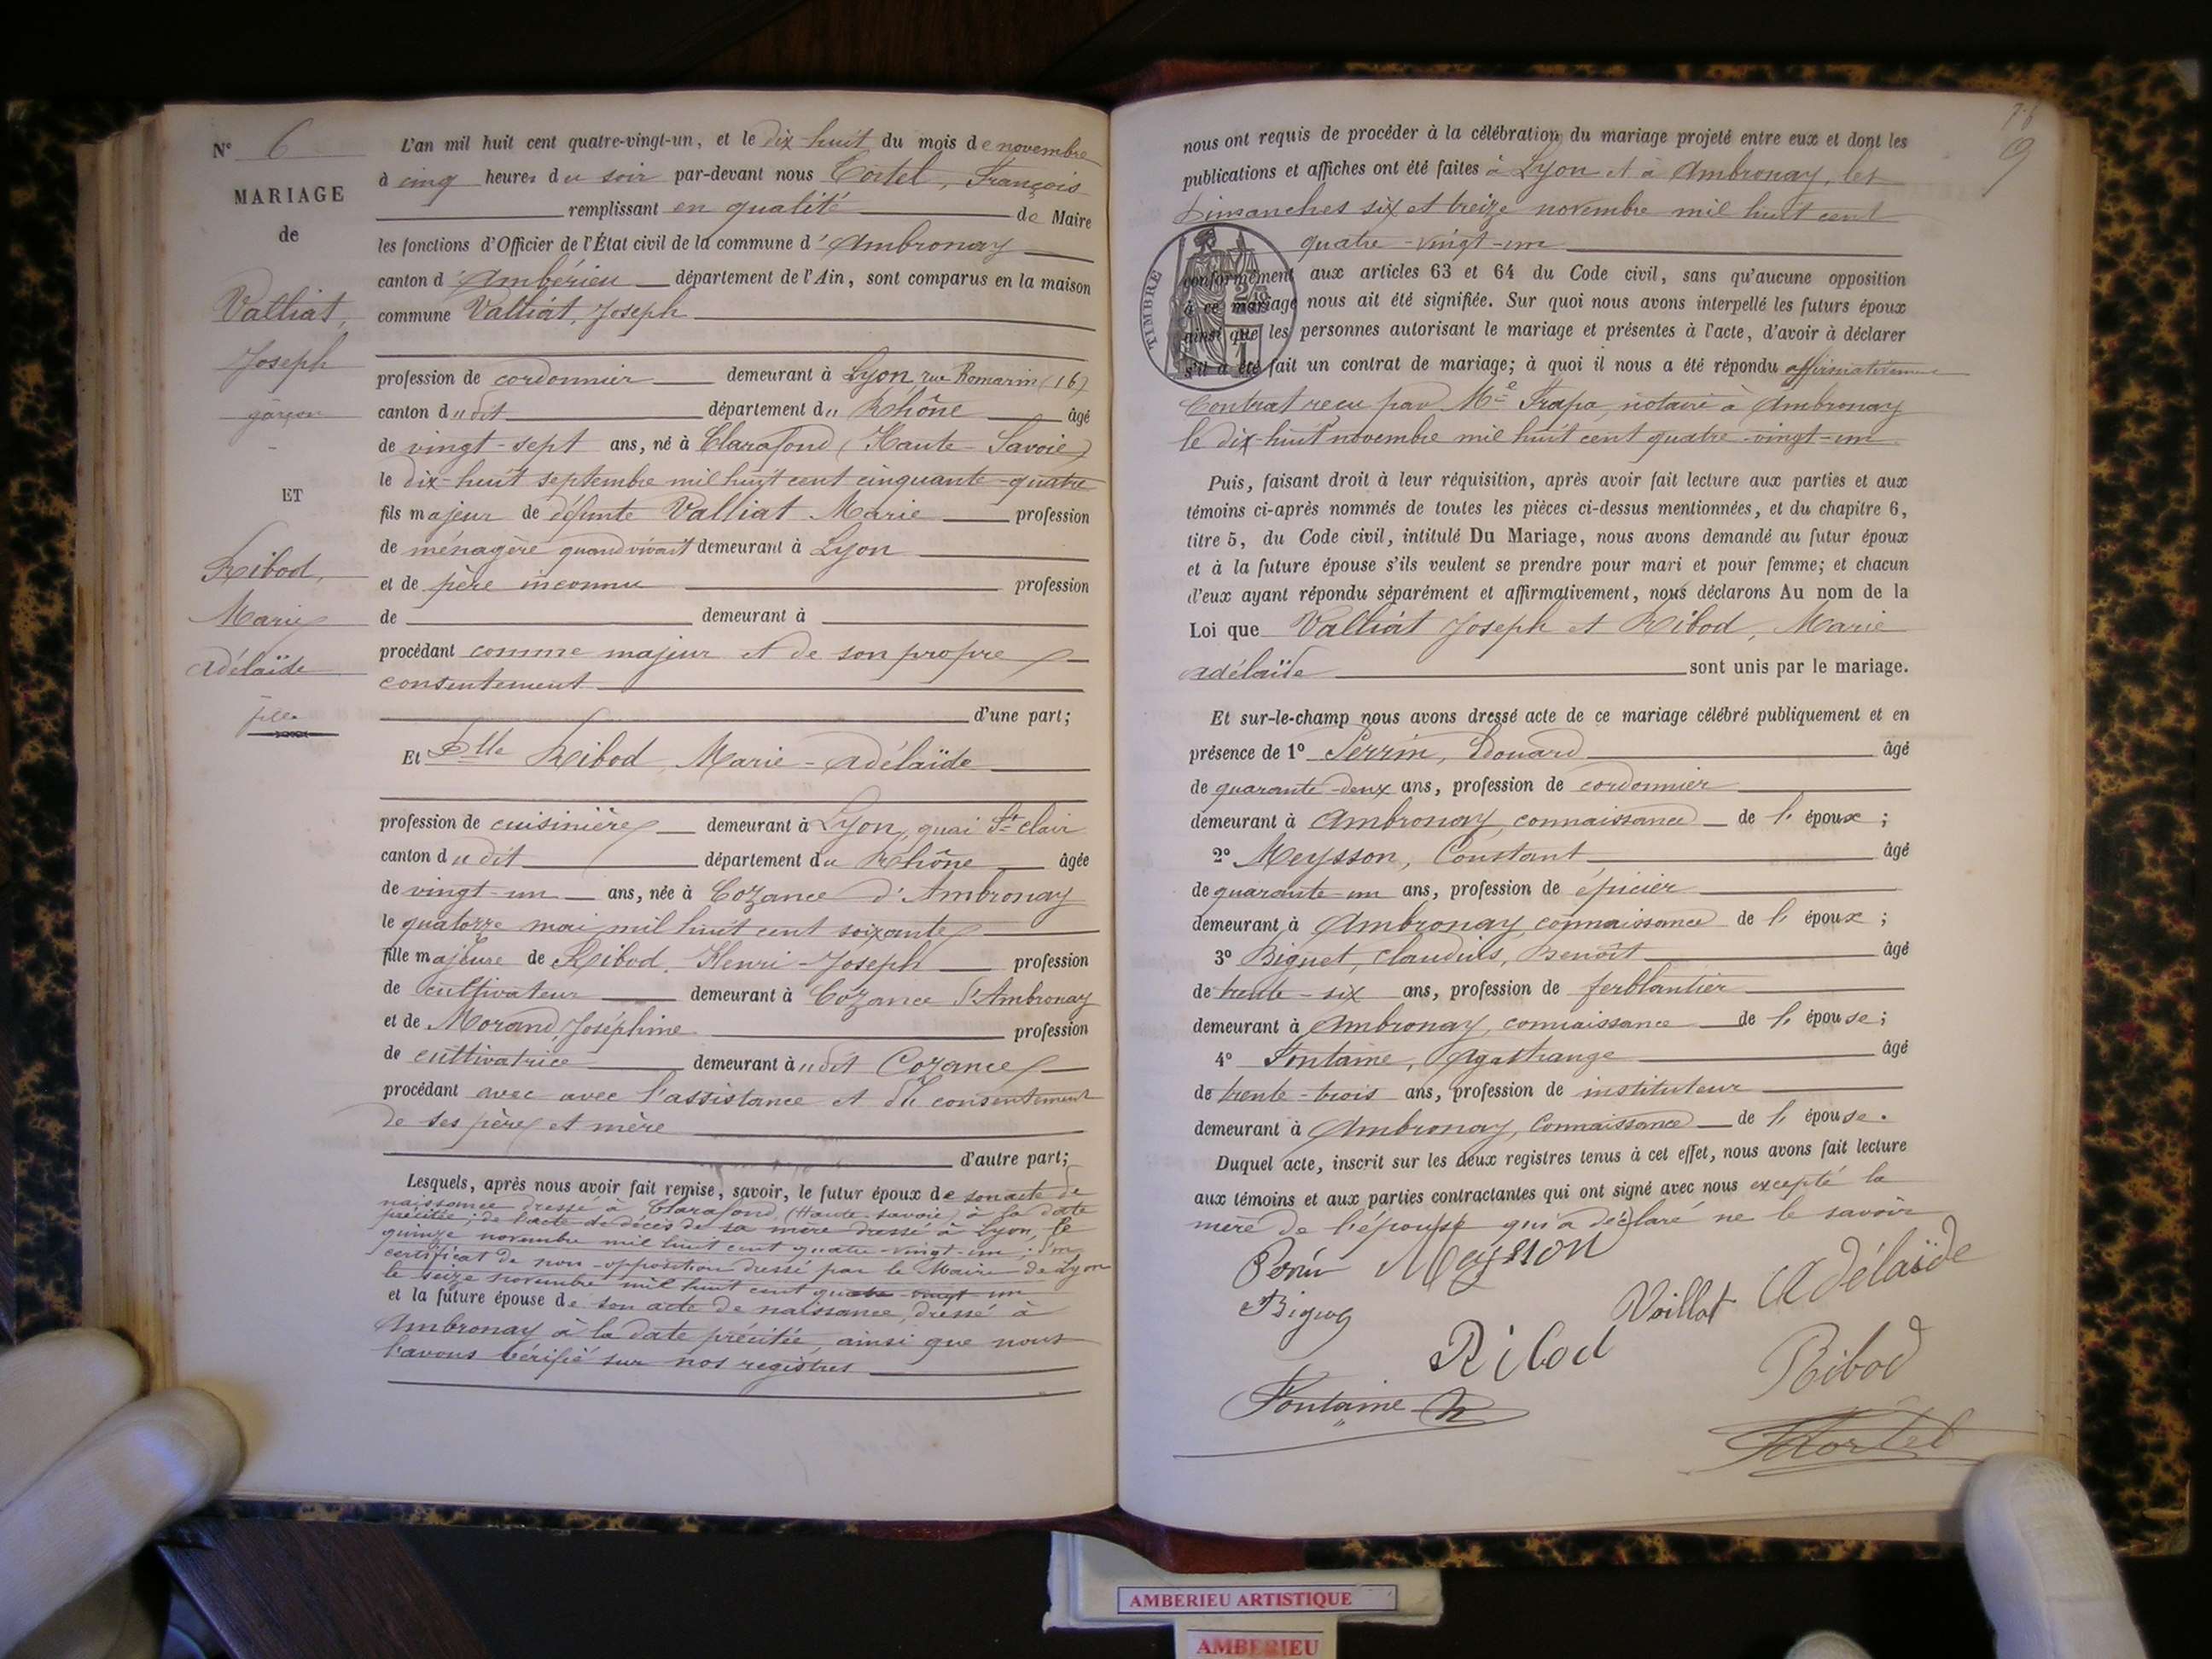 N° 6
MARIAGE
de
Valliat,
Joseph
garçon
ET
Ribod,
Marie
Adélaïde
fille
L'an mil huit cent quatre-vingt-un, et le dix-huit du mois de novembre
à cinq heures du soir par-devant nous Tortel, François
remplissant en qualité de Maire
les fonctions d'Officier de l'État civil de la commune d'Ambronay
canton d'Ambérieu département de l'Ain, sont comparus en la maison
commune Valliat, Joseph
profession de cordonnier demeurant à Lyon, rue Romarin (16)
canton dudit département du Rhône âgé
de vingt-sept ans, né à Clarafond (Haute-Savoie)
le dix-huit septembre mil huit cent cinquante-quatre
fils majeur de défunte Valliat Marie profession
de ménagère quand vivait demeurant à Lyon
et de père inconnu profession
de demeurant à
procédant comme majeur et de son propre
consentement
d'une part;
Et Dlle Ribod, Marie-Adélaïde
profession de cuisinière demeurant à Lyon, quai St clair
canton dudit département du Rhône âgée
de vingt-un ans, née à Cozance d'Ambronay
le quatorze mai mil huit cent soixante
fille majeure de Ribod, Henri-Joseph profession
de cultivateur demeurant à Cozance d'Ambronay
et de Morand, Joséphine profession
de cultivatrice demeurant à udit Cozance
procédant avec avec l'assistance et du consentement
de ses père et mère
d'autre part;
Lesquels, après nous avoir fait remise, savoir, le futur époux de son acte de
naissance dressé à Clarafond (Haute-Savoie) à la date
précitée; de l'acte de décès de sa mère dressé à Lyon, le
quinze novembre mil huit cent quatre-vingt-un; d'un
certificat de non-opposition dressé par le Maire de Lyon
le seize novembre mil huit cent quatre-vingt-un
et la future épouse de son acte de naissance, dressé à
Ambronay à la date précitée, ainsi que nous
l'avons vérifié sur nos registres
76
9
nous ont requis de procéder à la célébration du mariage projeté entre eux et dont les
publications et affiches ont été faites à Lyon et à Ambronay, les
Dimanches six et treize novembre mil huit cent
quatre-vingt-un
TIMBRE
conformément aux articles 63 et 64 du Code civil, sans qu'aucune opposition
à ce mariage nous ait été signifiée. Sur quoi nous avons interpellé les futurs époux
ainsi que les personnes autorisant le mariage et présentes à l'acte, d'avoir à déclarer
s'il a été fait un contrat de mariage; à quoi il nous a été répondu affirmativement
Contrat reçu par Me Trapa, notaire à Ambronay
le dix-huit novembre mil huit cent quatre-vingt-un
Puis, faisant droit à leur réquisition, après avoir fait lecture aux parties et aux
témoins ci-après nommés de toutes les pièces ci-dessus mentionnées, et du chapitre 6,
titre 5, du Code civil, intitulé Du Mariage, nous avons demandé au futur époux
et à la future épouse s'ils veulent se prendre pour mari et pour femme; et chacun
d'eux ayant répondu séparément et affirmativement, nous déclarons Au nom de la
Loi que Valliat Joseph et Ribod, Marie
Adélaïde sont unis par le mariage.
Et sur-le-champ nous avons dressé acte de ce mariage célébré publiquement et en
présence de 1° Perrin, Edouard âgé
de quarante-deux ans, profession de cordonnier
demeurant à Ambronay, connaissance de l'époux;
2° Meysson, Constant âgé
de quarante-un ans, profession de épicier
demeurant à Ambronay, connaissance de l'époux;
3° Biguet, Claudius, Benoît âgé
de trente-six ans, profession de ferblantier
demeurant à Ambronay, connaissance de l'épouse;
4° Fontaine, Agathange âgé
de trente-trois ans, profession de instituteur
demeurant à Ambronay, Connaissance de l'épouse.
Duquel acte, inscrit sur les deux registres tenus à cet effet, nous avons fait lecture
aux témoins et aux parties contractantes qui ont signé avec nous excepté la
mère de l'épouse qui a déclaré ne le savoir
Perrin Meysson
Voillat Adélaïde
Ribod Ribod
Fontaine
Tortel
AMBERIEU ARTISTIQUE
AMBERIEU